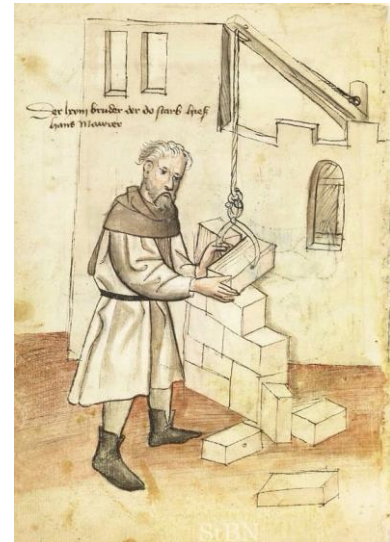 Der bruder der do starb hieß
hans Mawrer
StBN